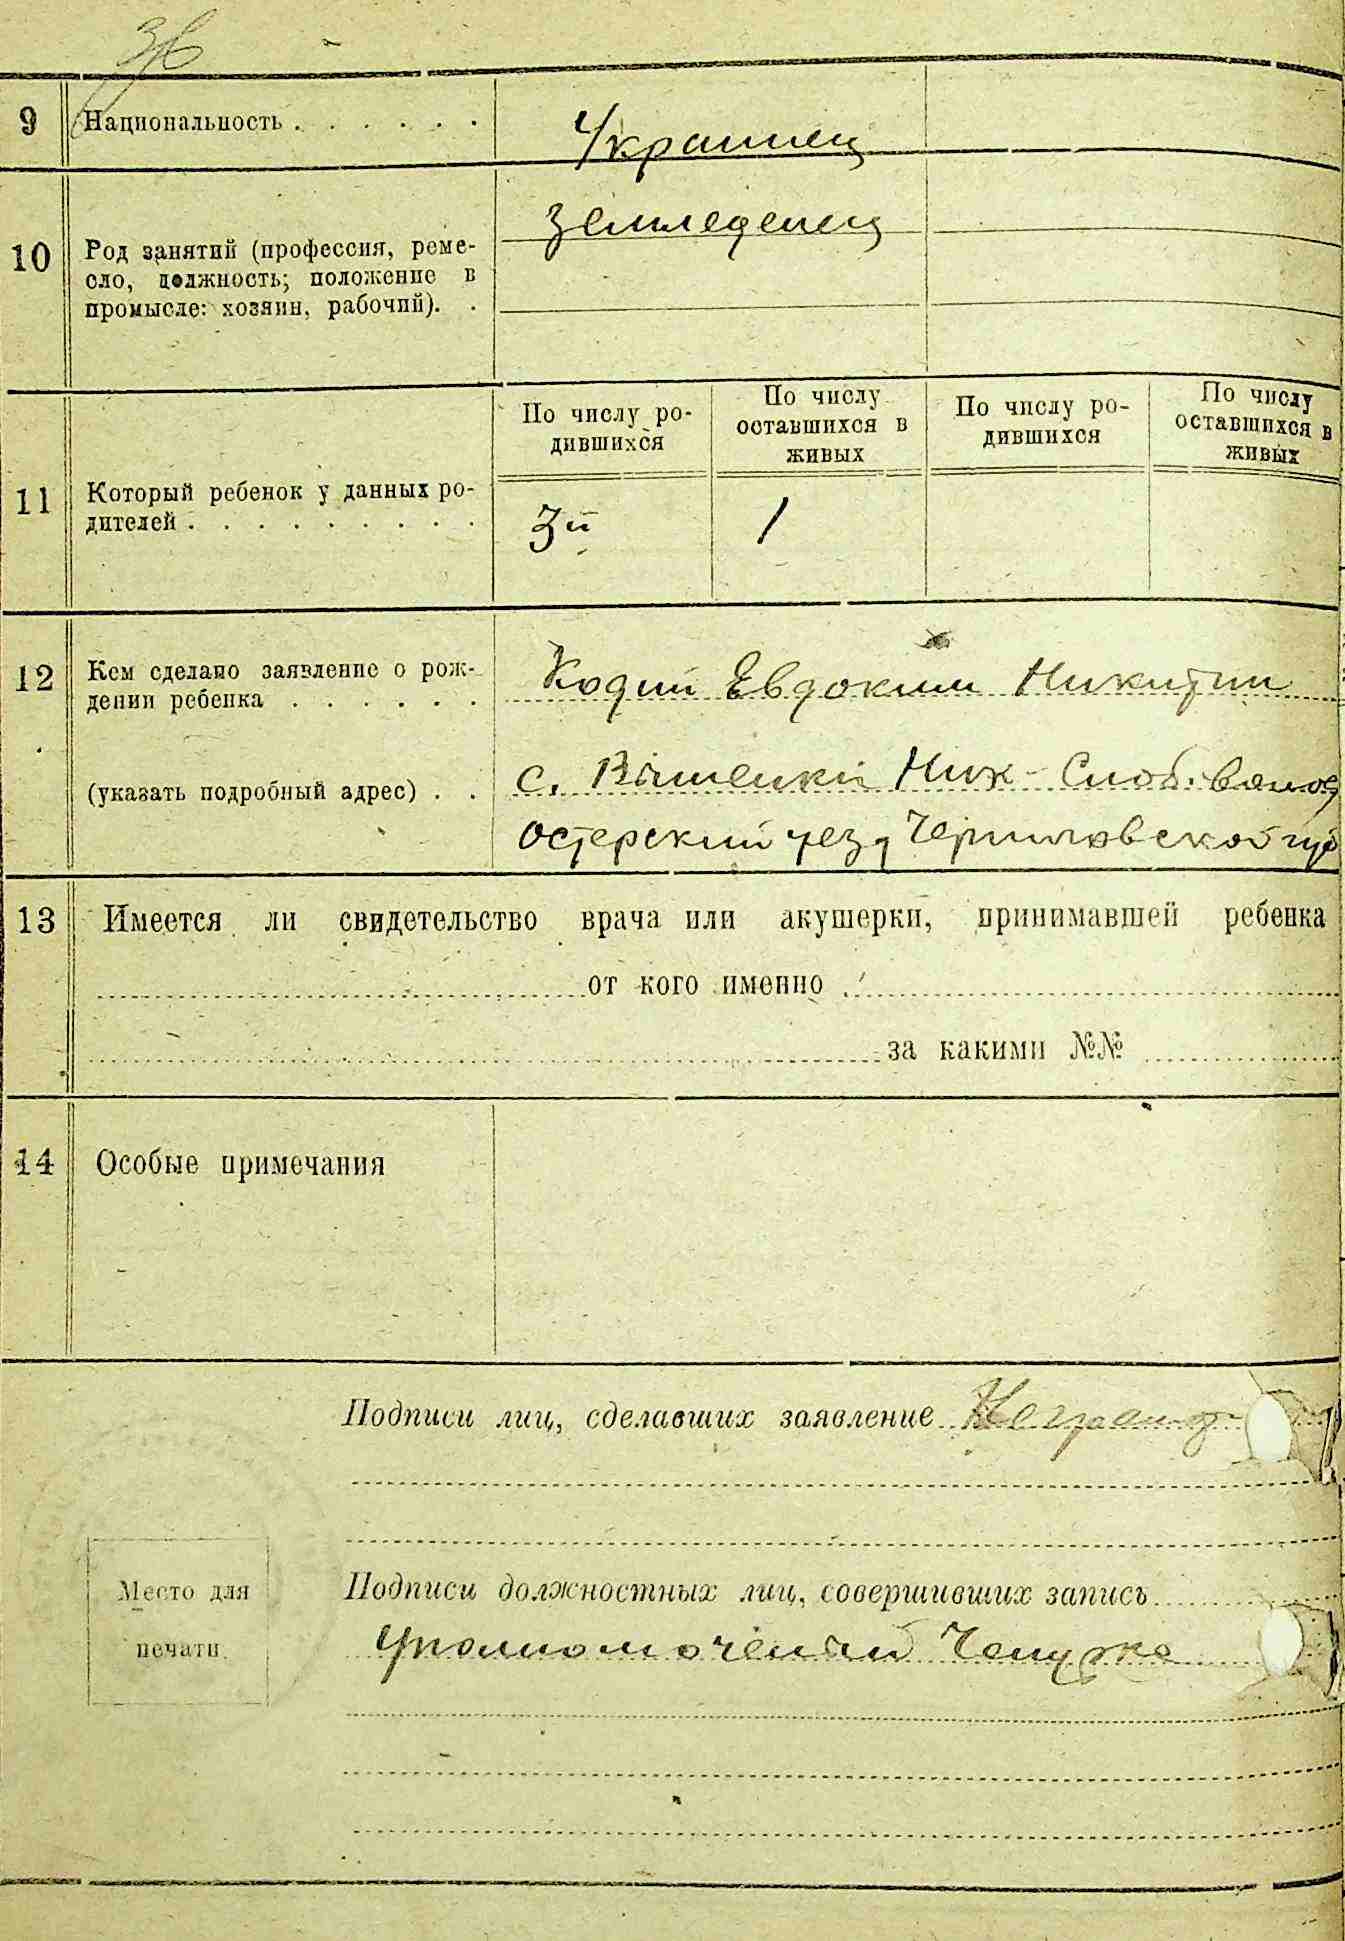 9 Национальность . . . . . . . Украинец
Земледелец
10 Род занятий (профессия, реме-
сло, должность; положение в
промысле: хозяин, рабочий). .
По числу ро-
дившихся
По числу
оставшихся в
живых
По числу ро-
дившихся
По числу
оставшихся в
живых
11 Который ребенок у данных ро-
дителей . . . . . . . . . 3й 1
12 Кем сделано заявление о рож-
дении ребенка . . . . . . Кодий Евдоким Никитин
(указать подробный адрес) . . с. Вишенки Ник-Слоб. волос
Остерский уезд Черниговской губ
13 Имеется ли свидетельство врача или акушерки, принимавшей ребенка
от кого именно
за какими №№
14 Особые примечания
Подписи лиц, сделавших заявление Неграмот
Место для
печати
Подписи должностных лиц, совершивших запись
Уполномочений